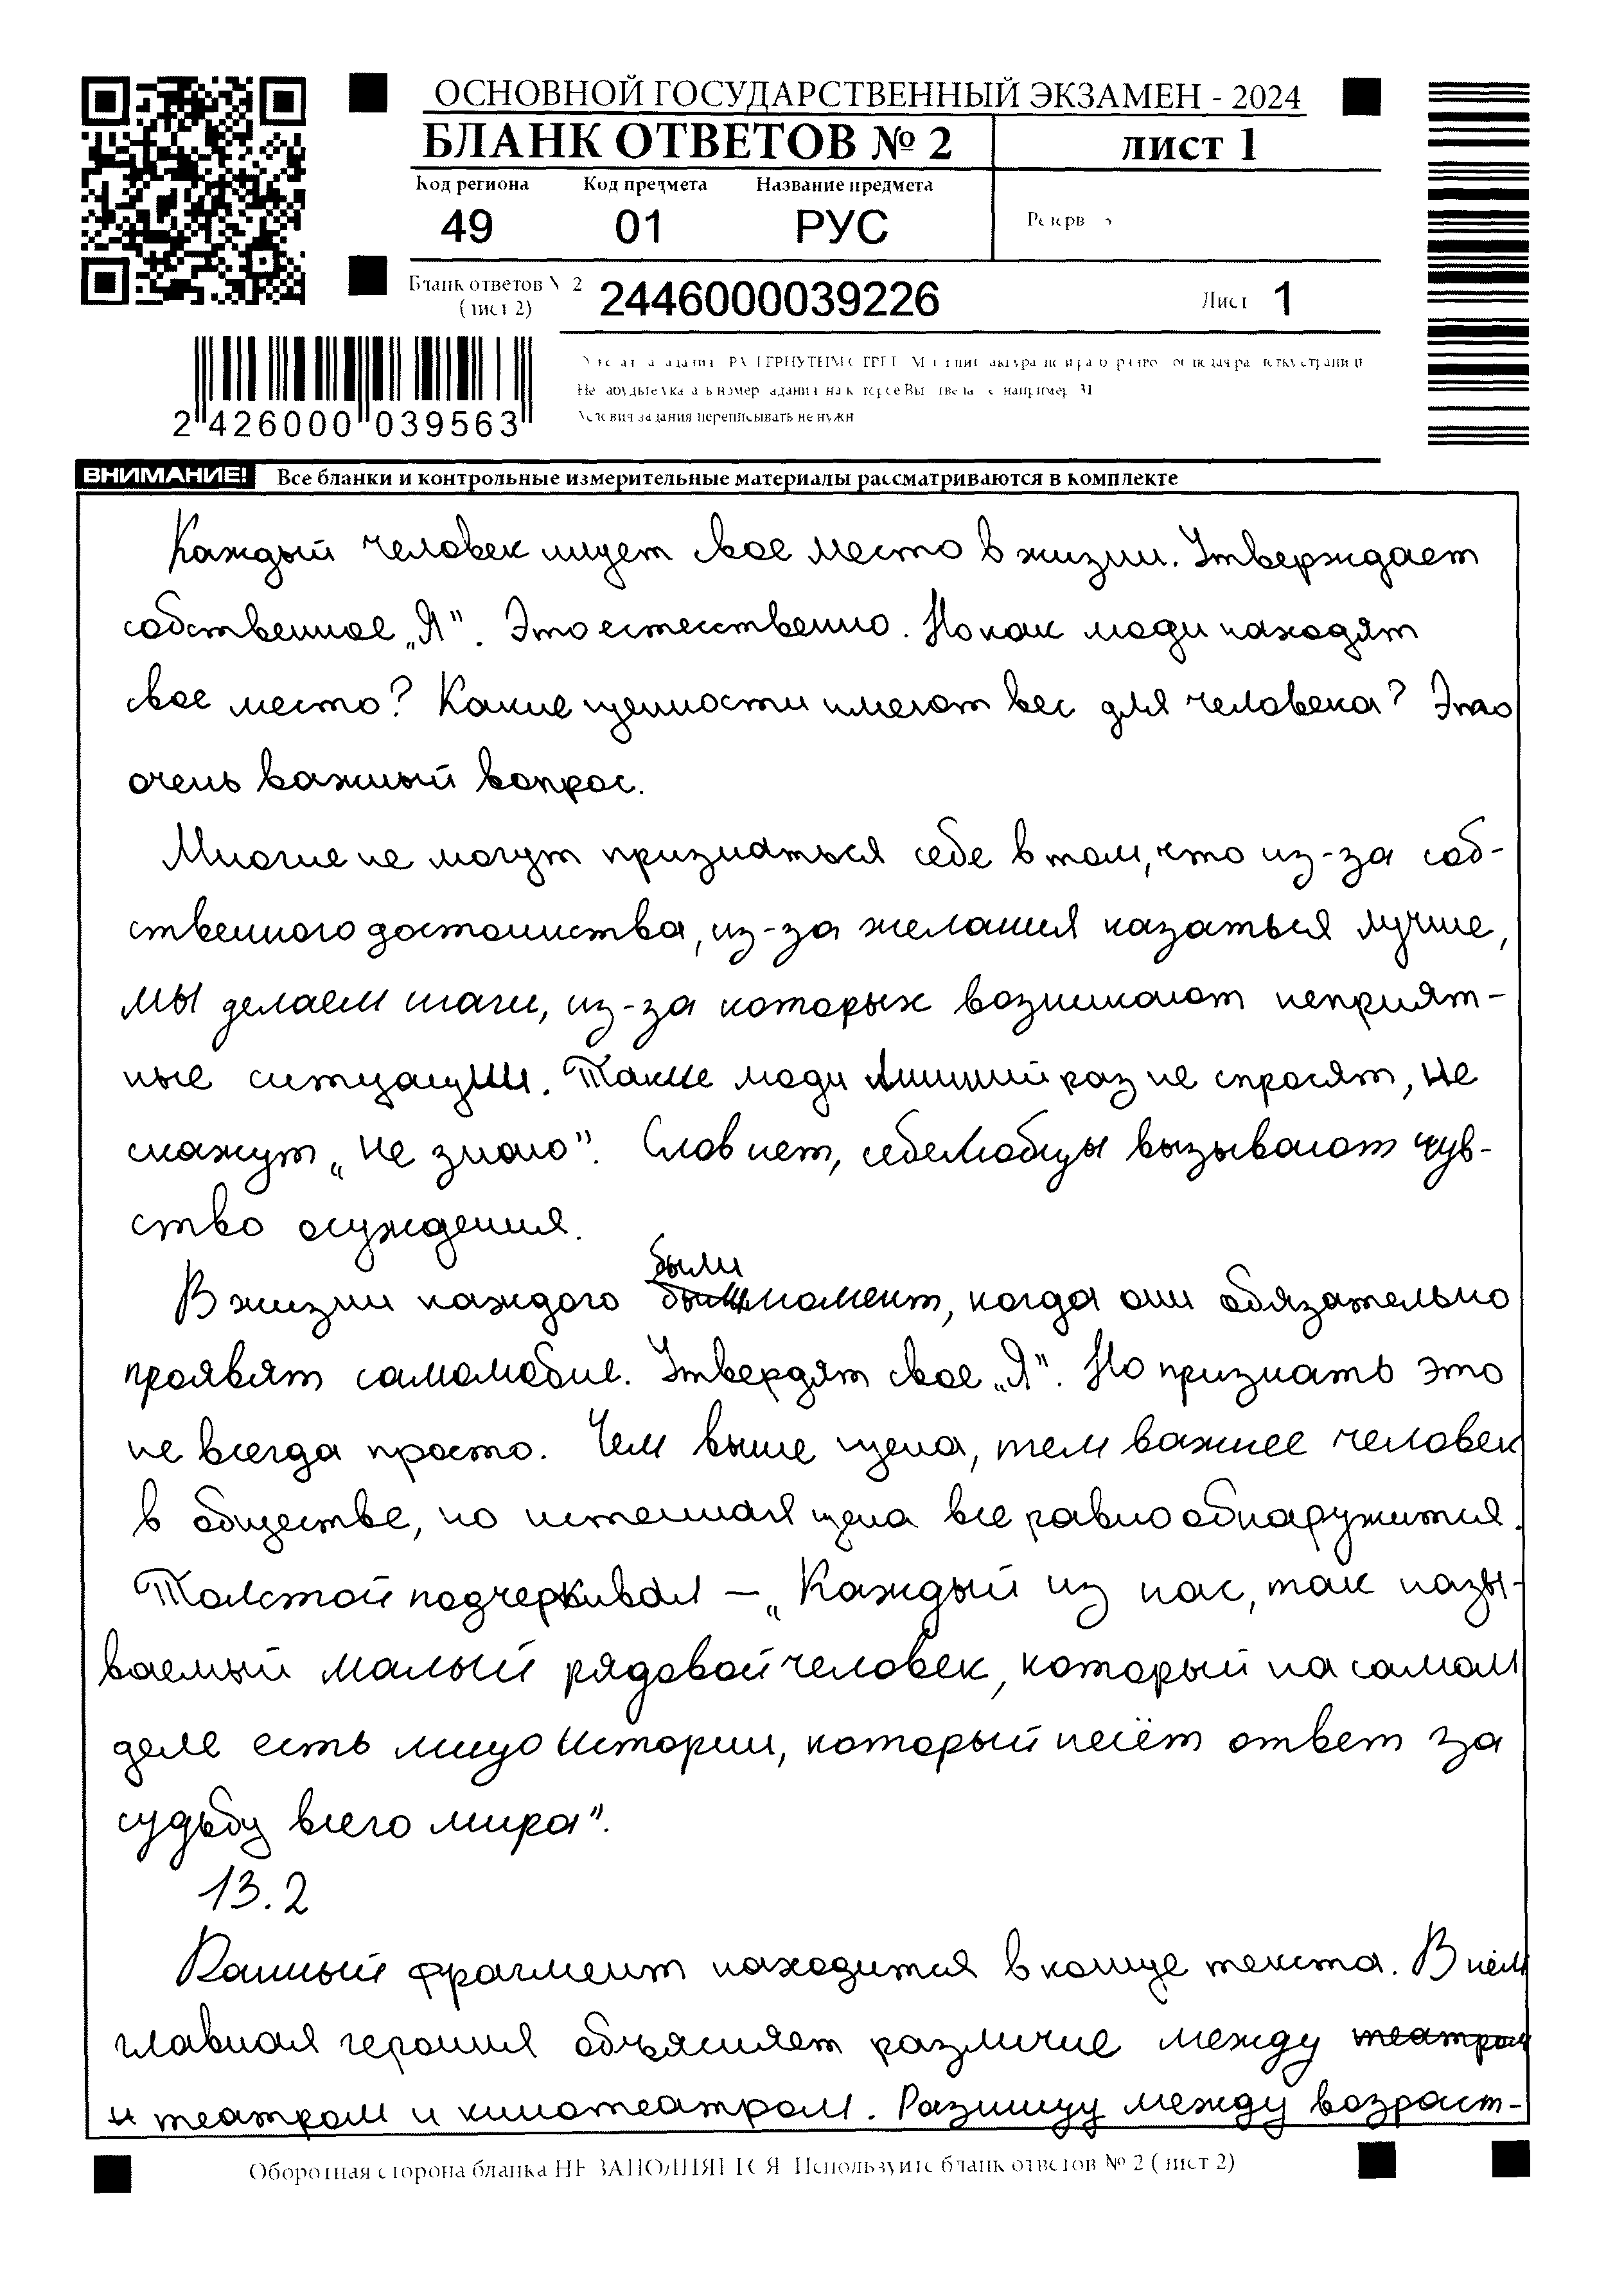 ОСНОВНОЙ ГОСУДАРСТВЕННЫЙ ЭКЗАМЕН - 2024
БЛАНК ОТВЕТОВ № 2
лист 1
Код региона
Код предмета
Название предмета
49
01
РУС
Резерв
Бланк ответов № 2
(лист 2)
2446000039226
Лист 1
Условия задания переписывать не нужн
2 426000 039563
ВНИМАНИЕ! Все бланки и контрольные измерительные материалы рассматриваются в комплекте
Каждый человек ищет свое место в жизни. Утверждает
собственное „Я". Это естесственно. Но как люди находят
свое место? Какие ценности имеют вес для человека? Это
очень важный вопрос.
Многие не могут признаться себе в том, что из-за соб-
ственного достоинства, из-за желания казаться лучше,
мы делаем шаги, из-за которых возникают неприят-
ные ситуации. Такие люди лишний раз не спросят, не
скажут „не знаю". Слов нет, себелюбцы вызывают чув-
ство осуждения.
В жизни каждого были момент, когда они обязательно
проявят самолюбие. Утвердят свое „Я". Но признать это
не всегда просто. Чем выше цена, тем важнее человек
в обществе, но истенная цена все равно обнаружится.
Толстой подчеркивал — „Каждый из нас, так назы-
ваемый малый рядовой человек, который на самом
деле есть лицо истории, который несёт ответ за
судьбу всего мира".
13.2
Данный фрагмент находится в конце текста. В нём
главная героиня объясняет различие между театром
и театром и кинотеатром. Разницу между возраст-
Оборотная сторона бланка НЕ ЗАПОЛНЯЕТСЯ. Используйте бланк ответов № 2 (лист 2)